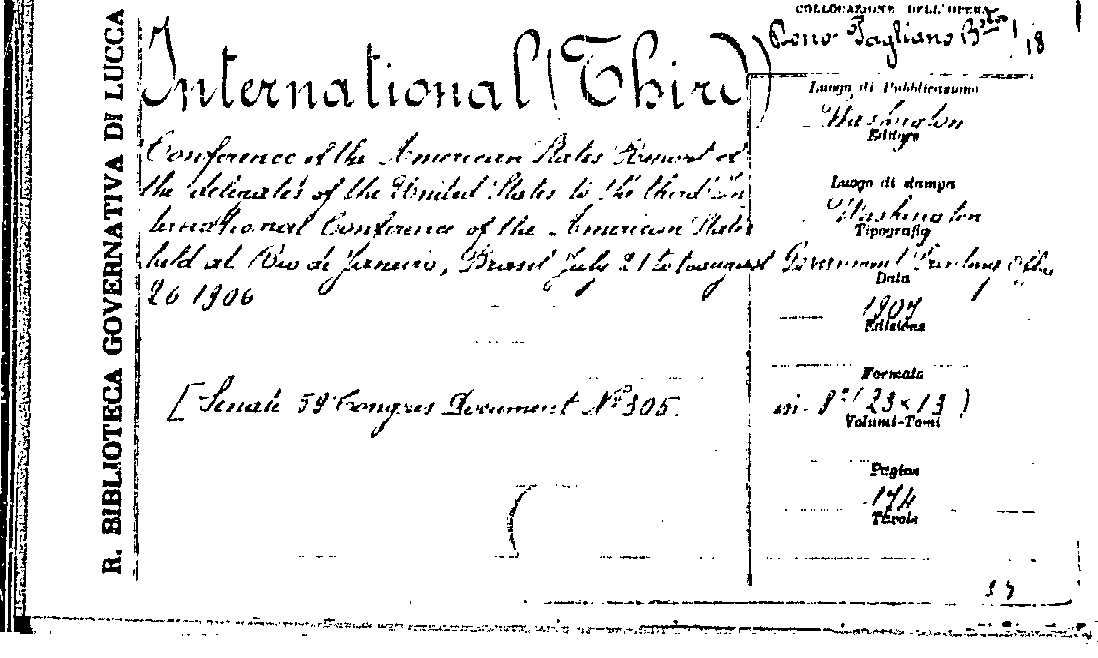 R. BIBLIOTECA GOVERNATIVA DI LUCCA
COLLOCAZIONE DELL'OPERA
18
International (Third)
Conference of the American States Report of
the delegates of the United States to the third In
ternational Conference of the American States
held at Rio de Janeiro, Brasil July 21 to august
26 1906
[Senate 59 Congres Document Nº 305.
Luogo di Pubblicazione
Washington
Editore
Luogo di stampa
Washington
Tipografia
Government Printing Office
Data
1907
Edizione
Formato
in- 8º (23x13)
Volumi-Tomi
Pagine
174
Tavole